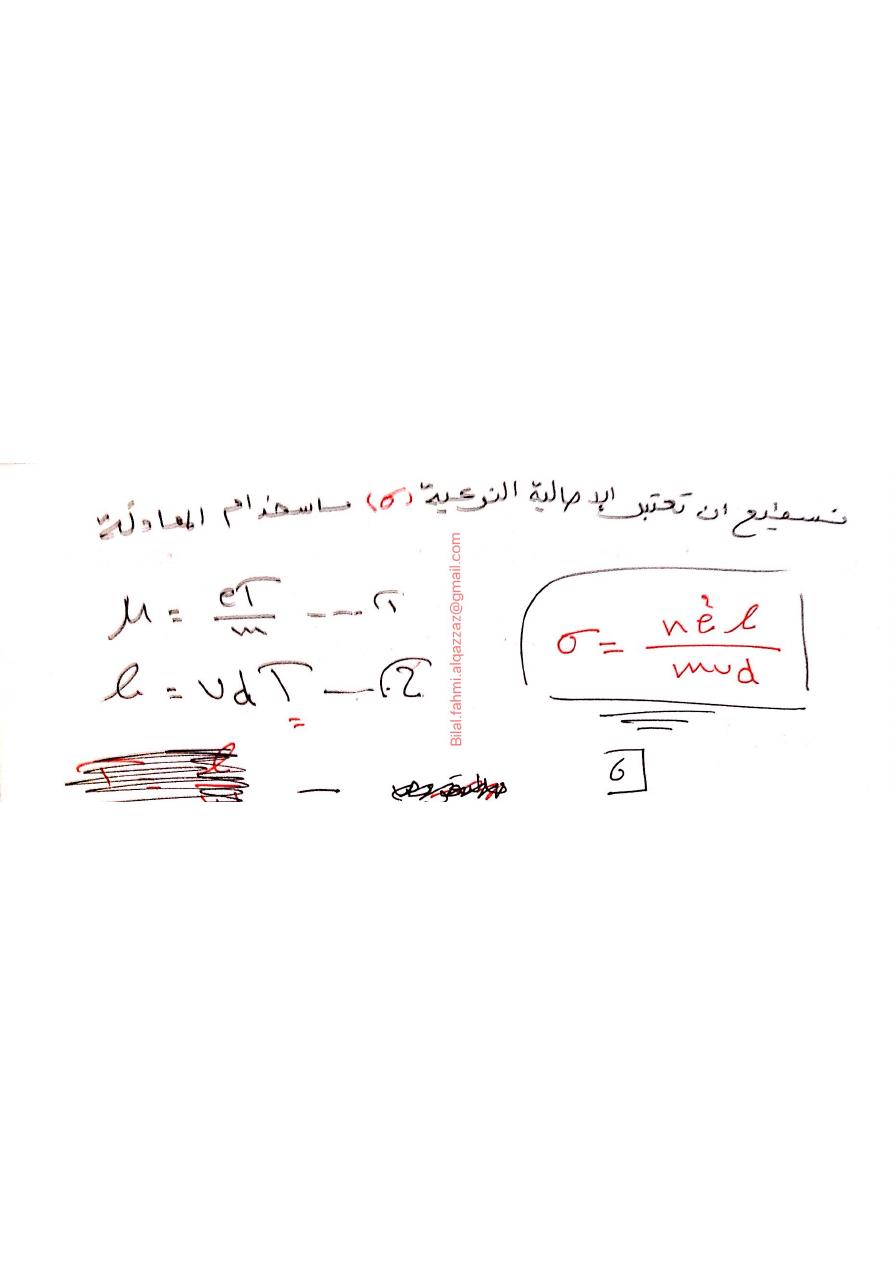 نستطيع ان نحتبر الايصالية النوعية (σ) باستخدام المعادلة
σ = ne²l / mvd
μ = eτ / m --- ٢
l = vd τ --- ٣
6
Bilal.fahmi.alqazzaz@gmail.com